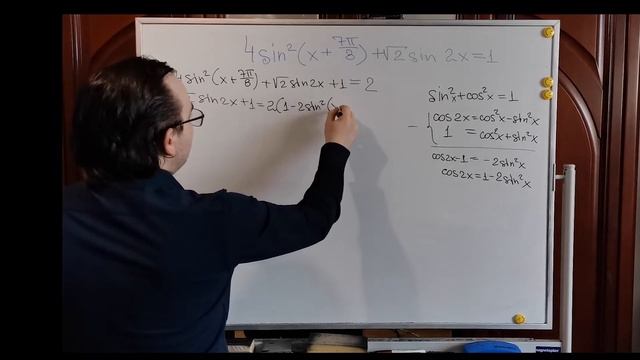 4 sin²(x + 7π/8) + √2 sin 2x = 1
4 sin²(x + 7π/8) + √2 sin 2x + 1 = 2
sin 2x + 1 = 2(1 - 2 sin²(
sin²x + cos²x = 1
- { cos 2x = cos²x - sin²x
1 = cos²x + sin²x
cos 2x - 1 = -2 sin²x
cos 2x = 1 - 2 sin²x